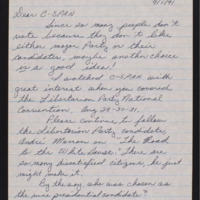 9/1/91
Dear C-SPAN
Since so many people don't
vote because they don't like
either major Party or their
candidates, maybe another choice
is a good idea!
I watched C-SPAN with
great interest when you covered
the Libertarian Party National
Convention Aug 29-30-31.
Please continue to follow
the Libertarian Party candidate,
Andre Marrou on "The Road
to the White House". There are
so many dissatisfied citizens, he just
might make it.
By the way, who was chosen as
the vice presidential candidate?